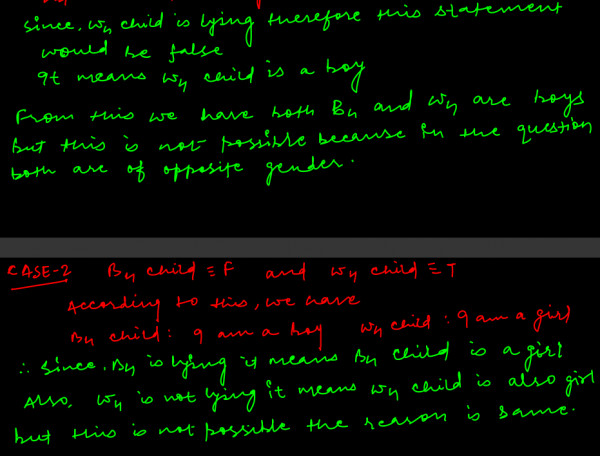 since, wₙ child is lying therefore this statement
would be false
It means wₙ child is a boy
From this we have both Bₙ and wₙ are boys
but this is not possible because in the question
both are of opposite gender.
CASE-2 Bₙ child ≡ F and wₙ child ≡ T
According to this, we have
Bₙ child : I am a boy wₙ child : I am a girl
∴ since, Bₙ is lying it means Bₙ child is a girl
Also, wₙ is not lying it means wₙ child is also girl
but this is not possible the reason is same.